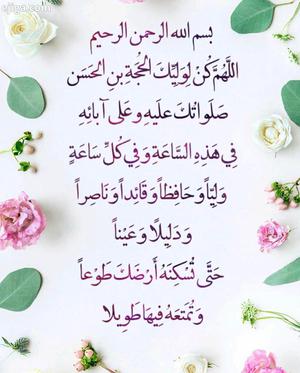 ejiga.com
بسم الله الرحمن الرحیم
اَللّٰهُمَّ كُنْ لِوَلِيِّكَ الْحُجَّةِ بْنِ الْحَسَنِ
صَلَوَاتُكَ عَلَيْهِ وَعَلَى آبَائِهِ
فِي هَذِهِ السَّاعَةِ وَفِي كُلِّ سَاعَةٍ
وَلِيّاً وَحَافِظاً وَقَائِداً وَنَاصِراً
وَدَلِيلًا وَعَيْناً
حَتَّى تُسْكِنَهُ أَرْضَكَ طَوْعاً
وَتُمَتِّعَهُ فِيهَا طَوِيلا